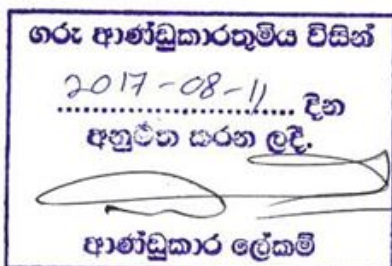 ගරු ආණ්ඩුකාරතුමිය විසින්
2017-08-11
.................... දින
අනුමත කරන ලදී.
ආණ්ඩුකාර ලේකම්